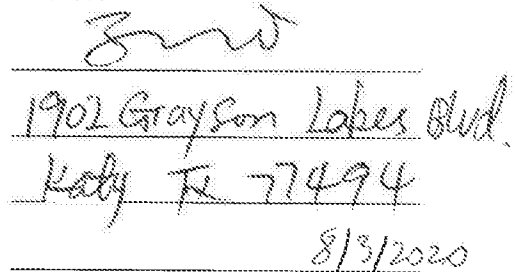 1902 Grayson Lakes Blvd.
Katy TX 77494
8/3/2020